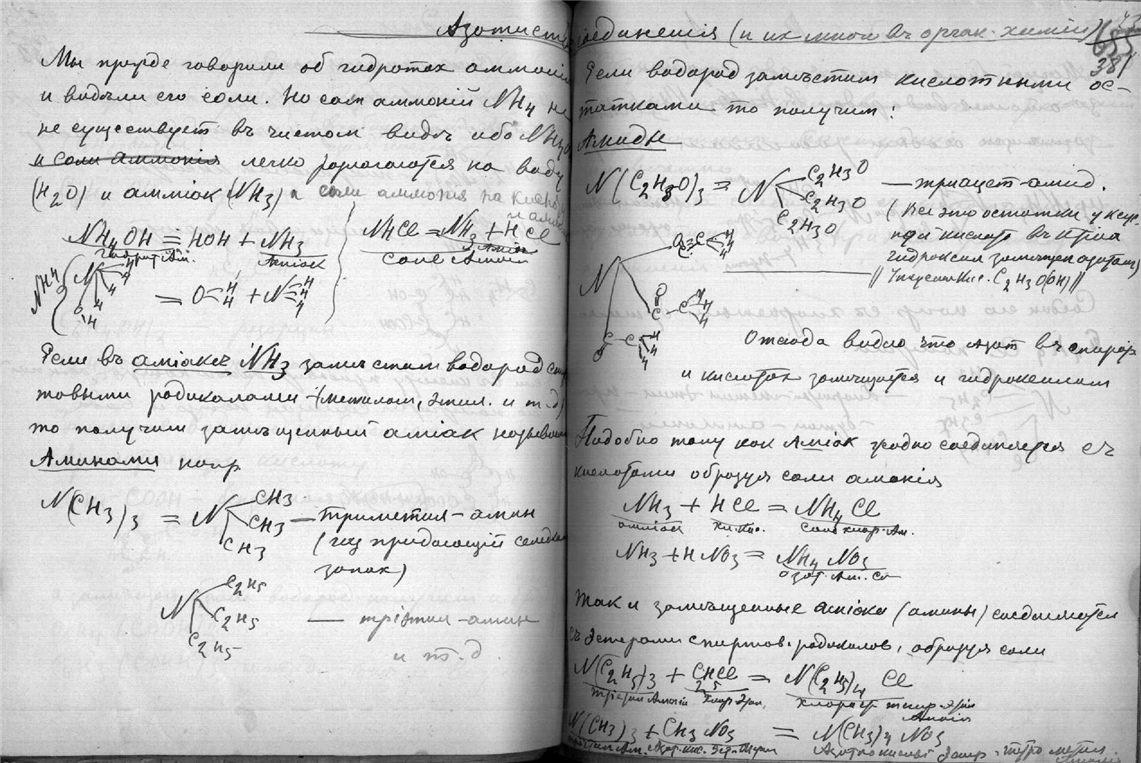 Азотистыя соединенія (и их много въ орган. химіи)
381
Мы прежде говорили об гидратах аммонія
и видѣли его соли. Но сам аммоній NH4 не
не существует въ чистом видѣ ибо
и соли аммонія легко разлагаются на воду
(H2O) и амміак (NH3) и соли аммонія на
NH4OH = HOH + NH3
Амiак
NHCl = NH3 + HCl
соле Амоній
NH4
N H H H H O H
= O H H + N H H H
Если въ аміакѣ NH3 заместим водород
товыми радикалами (метилом, этил. и т.д)
то получим замѣщенный аміак называем
Аминами напр
N(CH3)3 = N CH3 CH3 CH3 — триметил-амин
(газ придающій
запах)
N C2H5 C2H5 C2H5 — тріэтил-амин
и т.д.
Если водород замѣстим кислотными ос-
татками, то получим:
Амиды
N(C2H3O)3 = N C2H3O C2H3O C2H3O — триацет-амид.
(Все это остатки укс
ной кислоты въ
гидроксил замѣщен азотом)
|| Уксусн. Кис. C2H3O(OH) ||
Отсюда видно что азот въ
и кислотах замѣщается и гидроксилом
Подобно тому как Аміак жадно соединяется съ
кислотами образуя соли амонія
NH3 + HCl = NH4Cl
амміак Соль хлор. Ам.
NH3 + HNO3 = NH4NO3
азот. Ам. Со
так и замѣщенные аміаки (амины) соединяются
съ Эстерами спиртов. радикалов, образуя соли
N(C2H5)3 + C2H5Cl = N(C2H5)4 Cl
хлор Этил.
Амоній
N(CH3)3 + CH3NO3 = N(CH3)4 NO3
Азотнокислый тетра метил